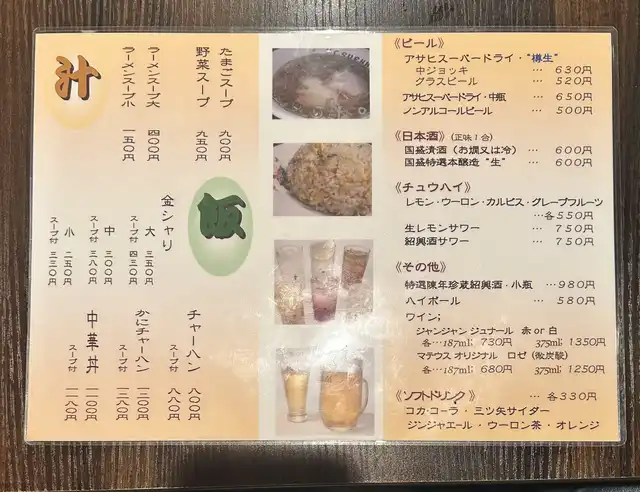 汁
たまごスープ 九〇〇円
野菜スープ 九五〇円
ラーメンスープ大 四〇〇円
ラーメンスープ小 一五〇円
飯
金シャリ
大 三五〇円
スープ付 四三〇円
中 三〇〇円
スープ付 三八〇円
小 二五〇円
スープ付 三三〇円
チャーハン 八〇〇円
スープ付 八八〇円
かにチャーハン 一三〇〇円
スープ付 一三八〇円
中華丼 一一〇〇円
スープ付 一一八〇円
《ビール》
アサヒスーパードライ・“樽生”
中ジョッキ … 630円
グラスビール … 520円
アサヒスーパードライ・中瓶 … 650円
ノンアルコールビール … 500円
《日本酒》(正味1合)
国盛清酒（お燗又は冷） … 600円
国盛特選本醸造“生” … 600円
《チュウハイ》
レモン・ウーロン・カルピス・グレープフルーツ
…各550円
生レモンサワー … 750円
紹興酒サワー … 750円
《その他》
特選陳年珍蔵紹興酒・小瓶 …980円
ハイボール … 580円
ワイン;
ジャンジャン ジュナール 赤 or 白
各…187ml; 730円 375ml; 1350円
マテウス オリジナル ロゼ（微炭酸）
各…187ml; 680円 375ml; 1250円
《ソフトドリンク》 …各330円
コカ・コーラ・三ツ矢サイダー
ジンジャエール・ウーロン茶・オレンジ